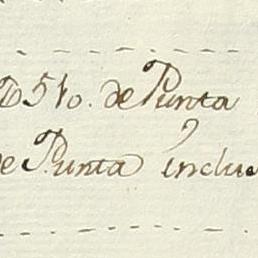 510. de Punta
de Punta inclu